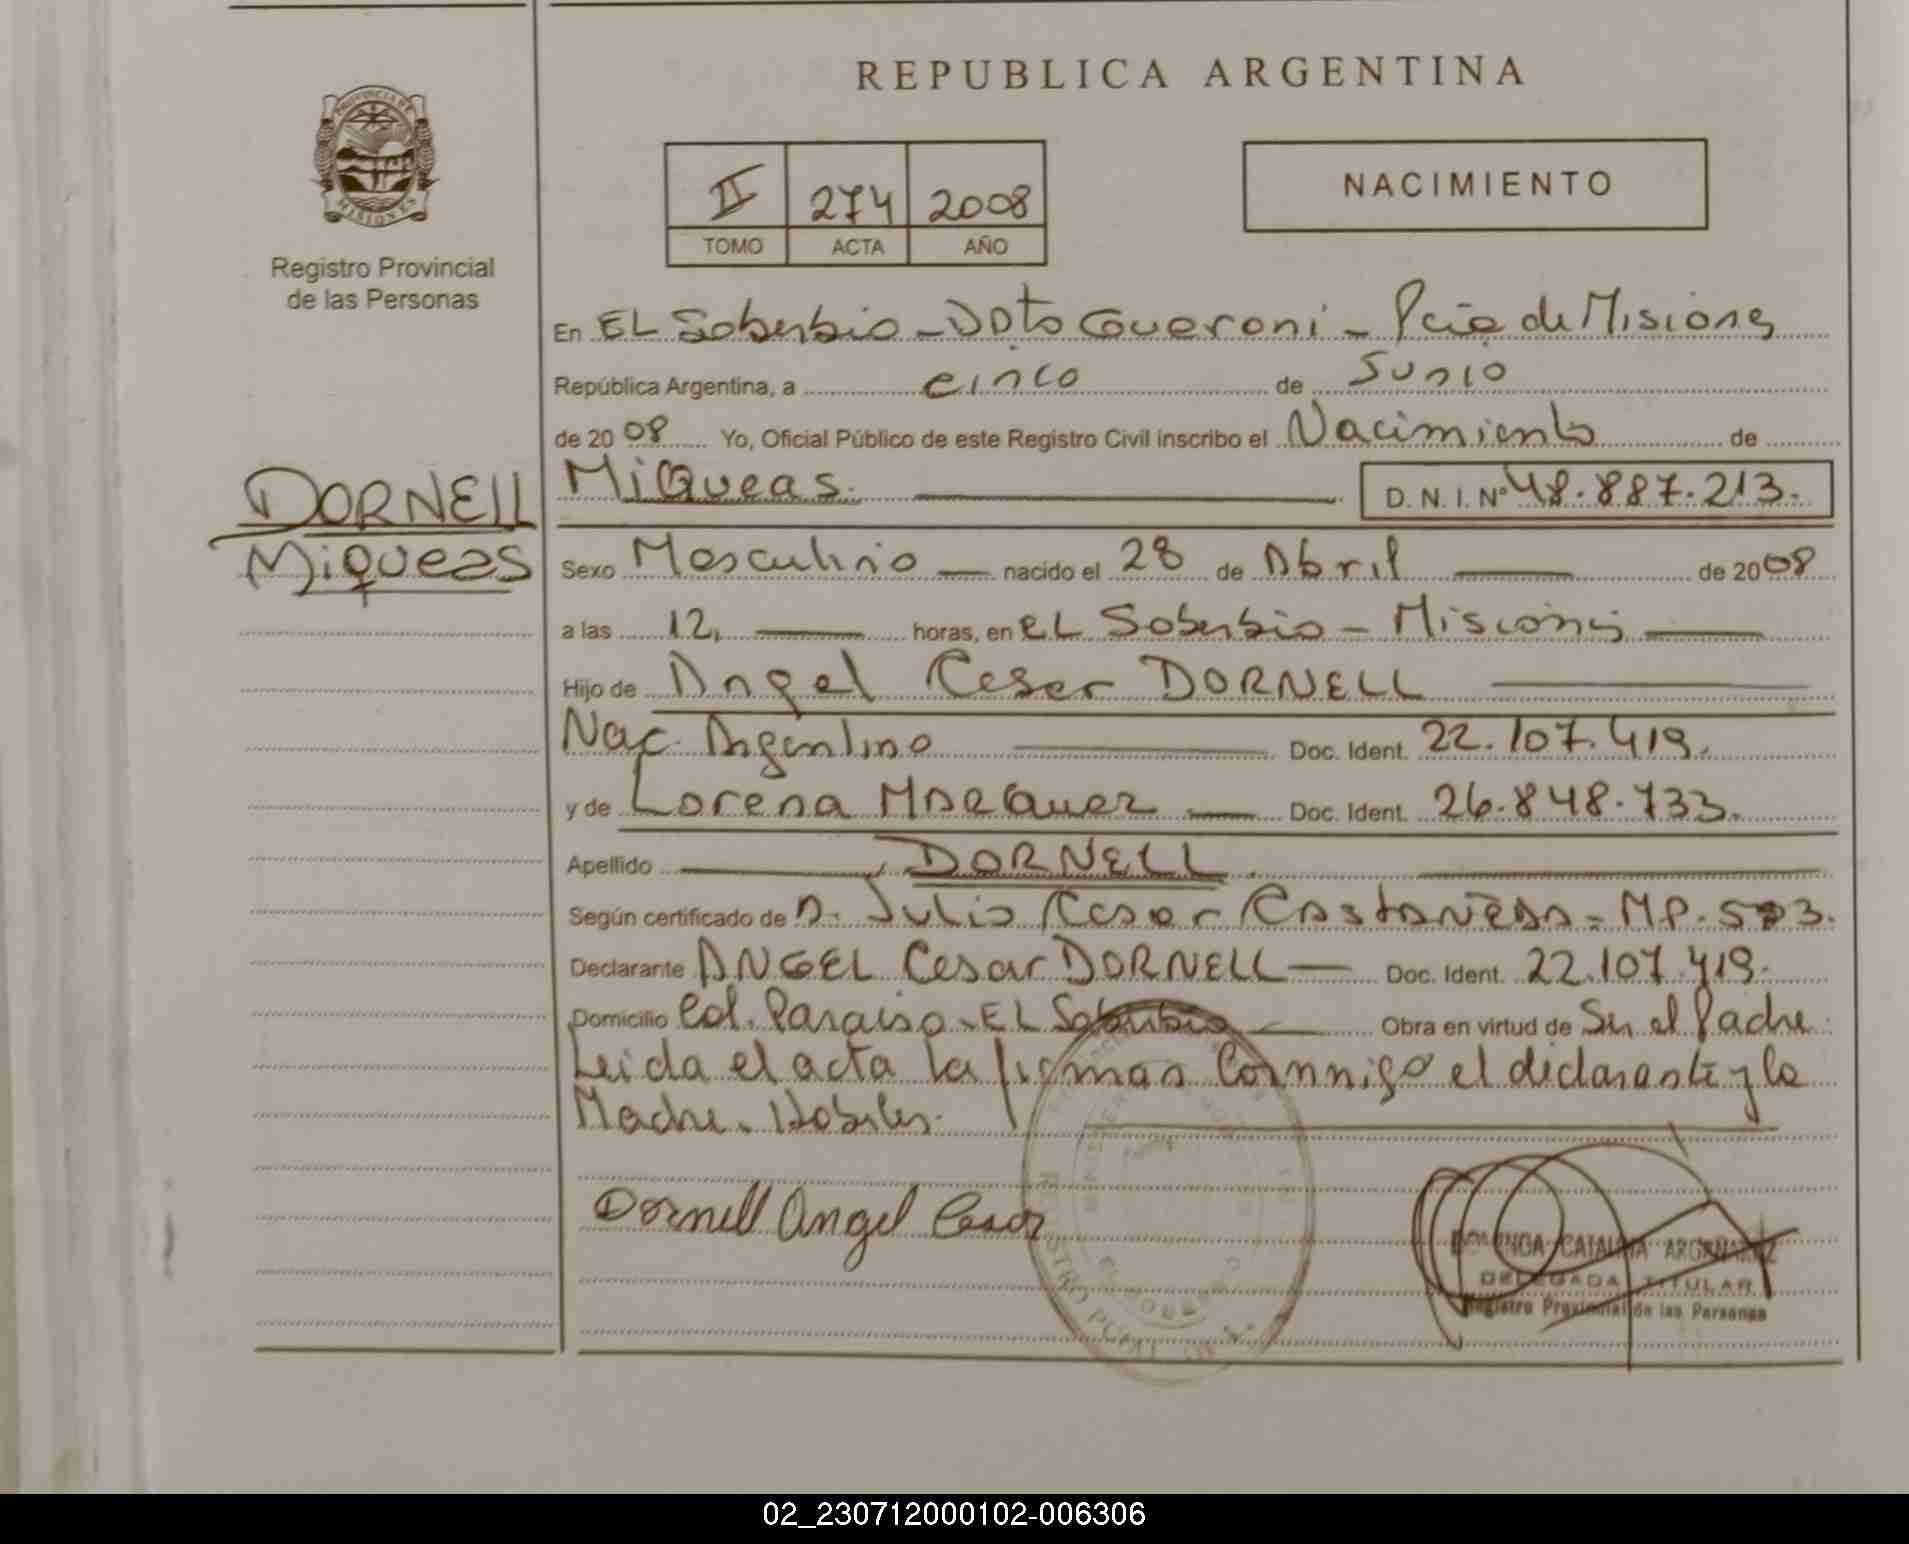 REPUBLICA ARGENTINA
PROVINCIA DE MISIONES
Registro Provincial
de las Personas
II 274 2008
TOMO ACTA AÑO
NACIMIENTO
En EL Soberbio - Dpto Guarani - Pcia de Misiones
República Argentina, a cinco de Junio
de 2008 Yo, Oficial Público de este Registro Civil inscribo el Nacimiento de
DORNELL
Miqueas
MiQueas. D.N.I. Nº 48.887.213.
Sexo Masculino nacido el 28 de Abril de 2008
a las 12, horas, en EL Soberbio - Misiones
Hijo de Angel Cesar DORNELL
Nac. Argentino Doc. Ident. 22.107.419.
y de Lorena MARQuez Doc. Ident. 26.848.733.
Apellido DORNELL.
Según certificado de D. Julio Cesar CASTAÑEDA - MP. 503.
Declarante ANGEL Cesar DORNELL Doc. Ident. 22.107.419.
Domicilio Col. Paraiso - EL Soberbio Obra en virtud de Ser el Padre
Leida el acta la firman Conmigo el declarante y la
Madre. Habiles.
Dornell Angel Cesar
CATALINA
DELEGADA TITULAR
Registro Provincial de las Personas
02_230712000102-006306